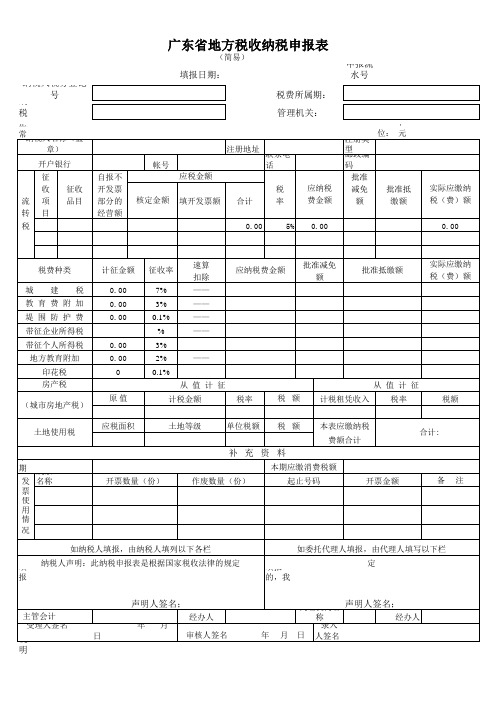 广东省地方税收纳税申报表
（简易）
填报日期：
水号
号
税费所属期：
税
管理机关：
常
位： 元
章）
注册地址
型
开户银行
帐号
话
码
流转税
征收项目
征收品目
自报不开发票部分的经营额
应税金额
核定金额 填开发票额 合计
税率
应纳税费金额
批准减免额
批准抵缴额
实际应缴纳税（费）额
0.00 5% 0.00 0.00
税费种类 计征金额 征收率 速算扣除 应纳税费金额 批准减免额 批准抵缴额 实际应缴纳税（费）额
城 建 税 0.00 7% ——
教 育 费 附 加 0.00 3% ——
堤 围 防 护 费 0.00 0.1% ——
带征企业所得税 % ——
带征个人所得税 0.00 3%
地方教育附加 0.00 2% ——
印花税 0 0.1%
房产税 从 值 计 征 从 值 计 征
（城市房地产税） 原值 计税金额 税率 税 额 计税租凭收入 税率 税额
土地使用税 应税面积 土地等级 单位税额 税 额 本表应缴纳税费额合计 合计:
补 充 资 料
期
本期应缴消费税额
发票使用情况
名称 开票数量（份） 作废数量（份） 起止号码 开票金额 备 注
如纳税人填报，由纳税人填列以下各栏 如委托代理人填报，由代理人填写以下栏
纳税人声明：此纳税申报表是根据国家税收法律的规定 定
报
的，我
声明人签名： 声明人签名：
主管会计 经办人 称 经办人
受理人签名 年 月
日 审核人签名 年 月 日 录入人签名
明